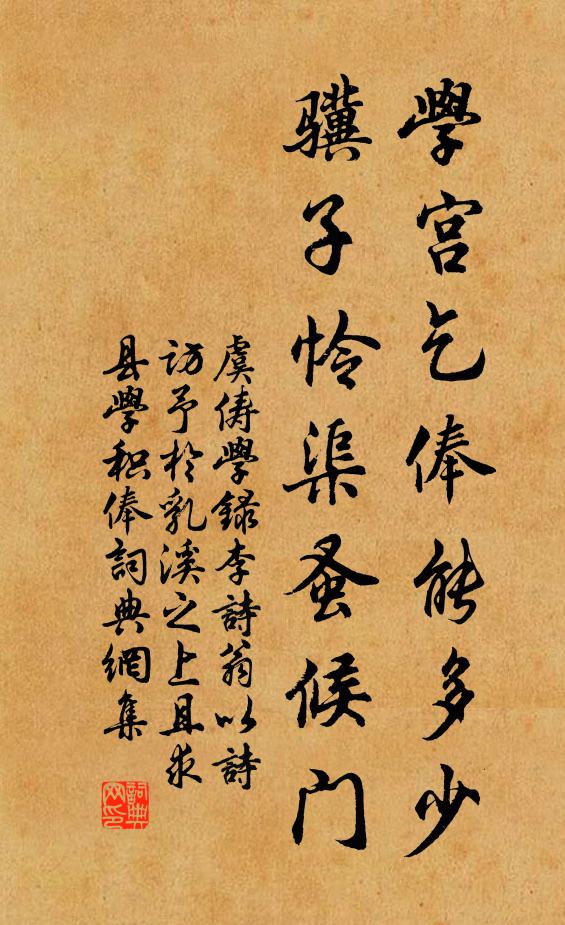 學宫乞俸能多少
骥子怜渠蚤候门
虞俦學録李詩翁以詩
访予於乳溪之上且求
县學积俸詞典網集
詞典网印